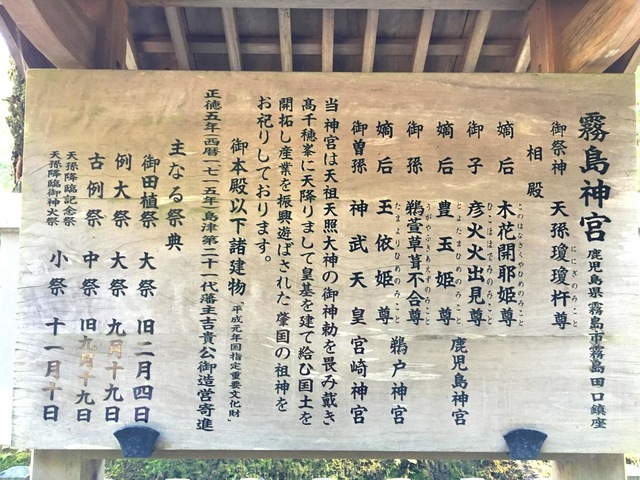 霧島神宮 鹿児島県霧島市霧島田口鎮座
御祭神 天孫瓊瓊杵尊
ににぎのみこと
相殿
嫡后 木花開耶姫尊
このはなさくやひめのみこと
御子 彦火火出見尊
ひこほほでみのみこと
嫡后 豊玉姫尊 鹿児島神宮
とよたまひめのみこと
御孫 鵜葺草葺不合尊
うがやふきあえずのみこと
嫡后 玉依姫尊 鵜戸神宮
たまよりひめのみこと
御曽孫 神武天皇 宮崎神宮
当神宮は天祖天照大神の御神勅を畏み戴き
高千穂峯に天降りまして皇基を建て給ひ国土を
開拓し産業を振興遊ばされた肇国の祖神を
お祀りしております。
御本殿以下諸建物「平成元年国指定重要文化財」
正徳五年(西暦一七一五年)島津第二十一代藩主吉貴公御造営寄進
主なる祭典
御田植祭 大祭 旧二月四日
例大祭 大祭 九月十九日
古例祭 中祭 旧九月十九日
天孫降臨記念祭
天孫降臨御神火祭 小祭 十一月十日